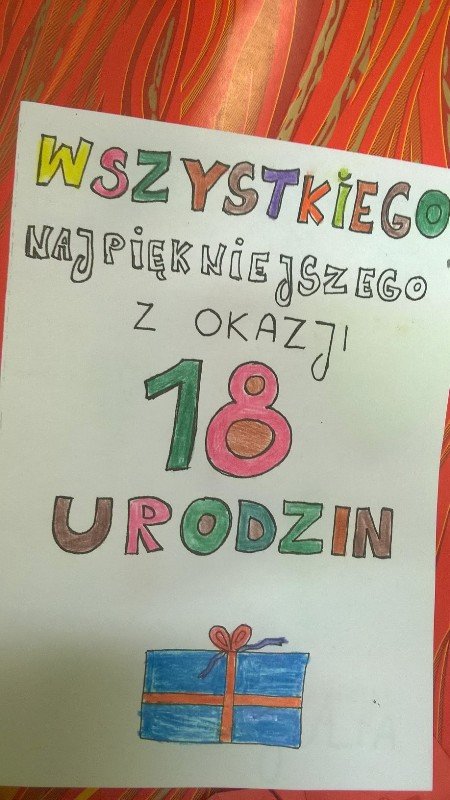 WSZYSTKIEGO
NAJPIĘKNIEJSZEGO
Z OKAZJI
18
URODZIN